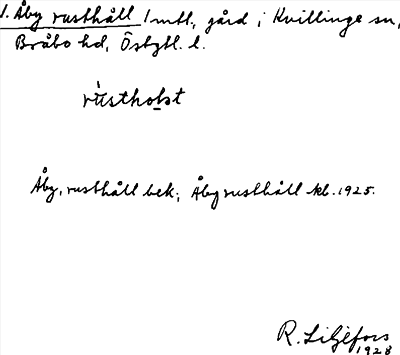 1. Åby rusthåll 1 mtl, gård i Kvillinge sn,
Bråbo hd, Östgtl. l.
rustholst
Åby, rusthåll bek; Åby rusthåll kb. 1925.
R. Liljefors
1928